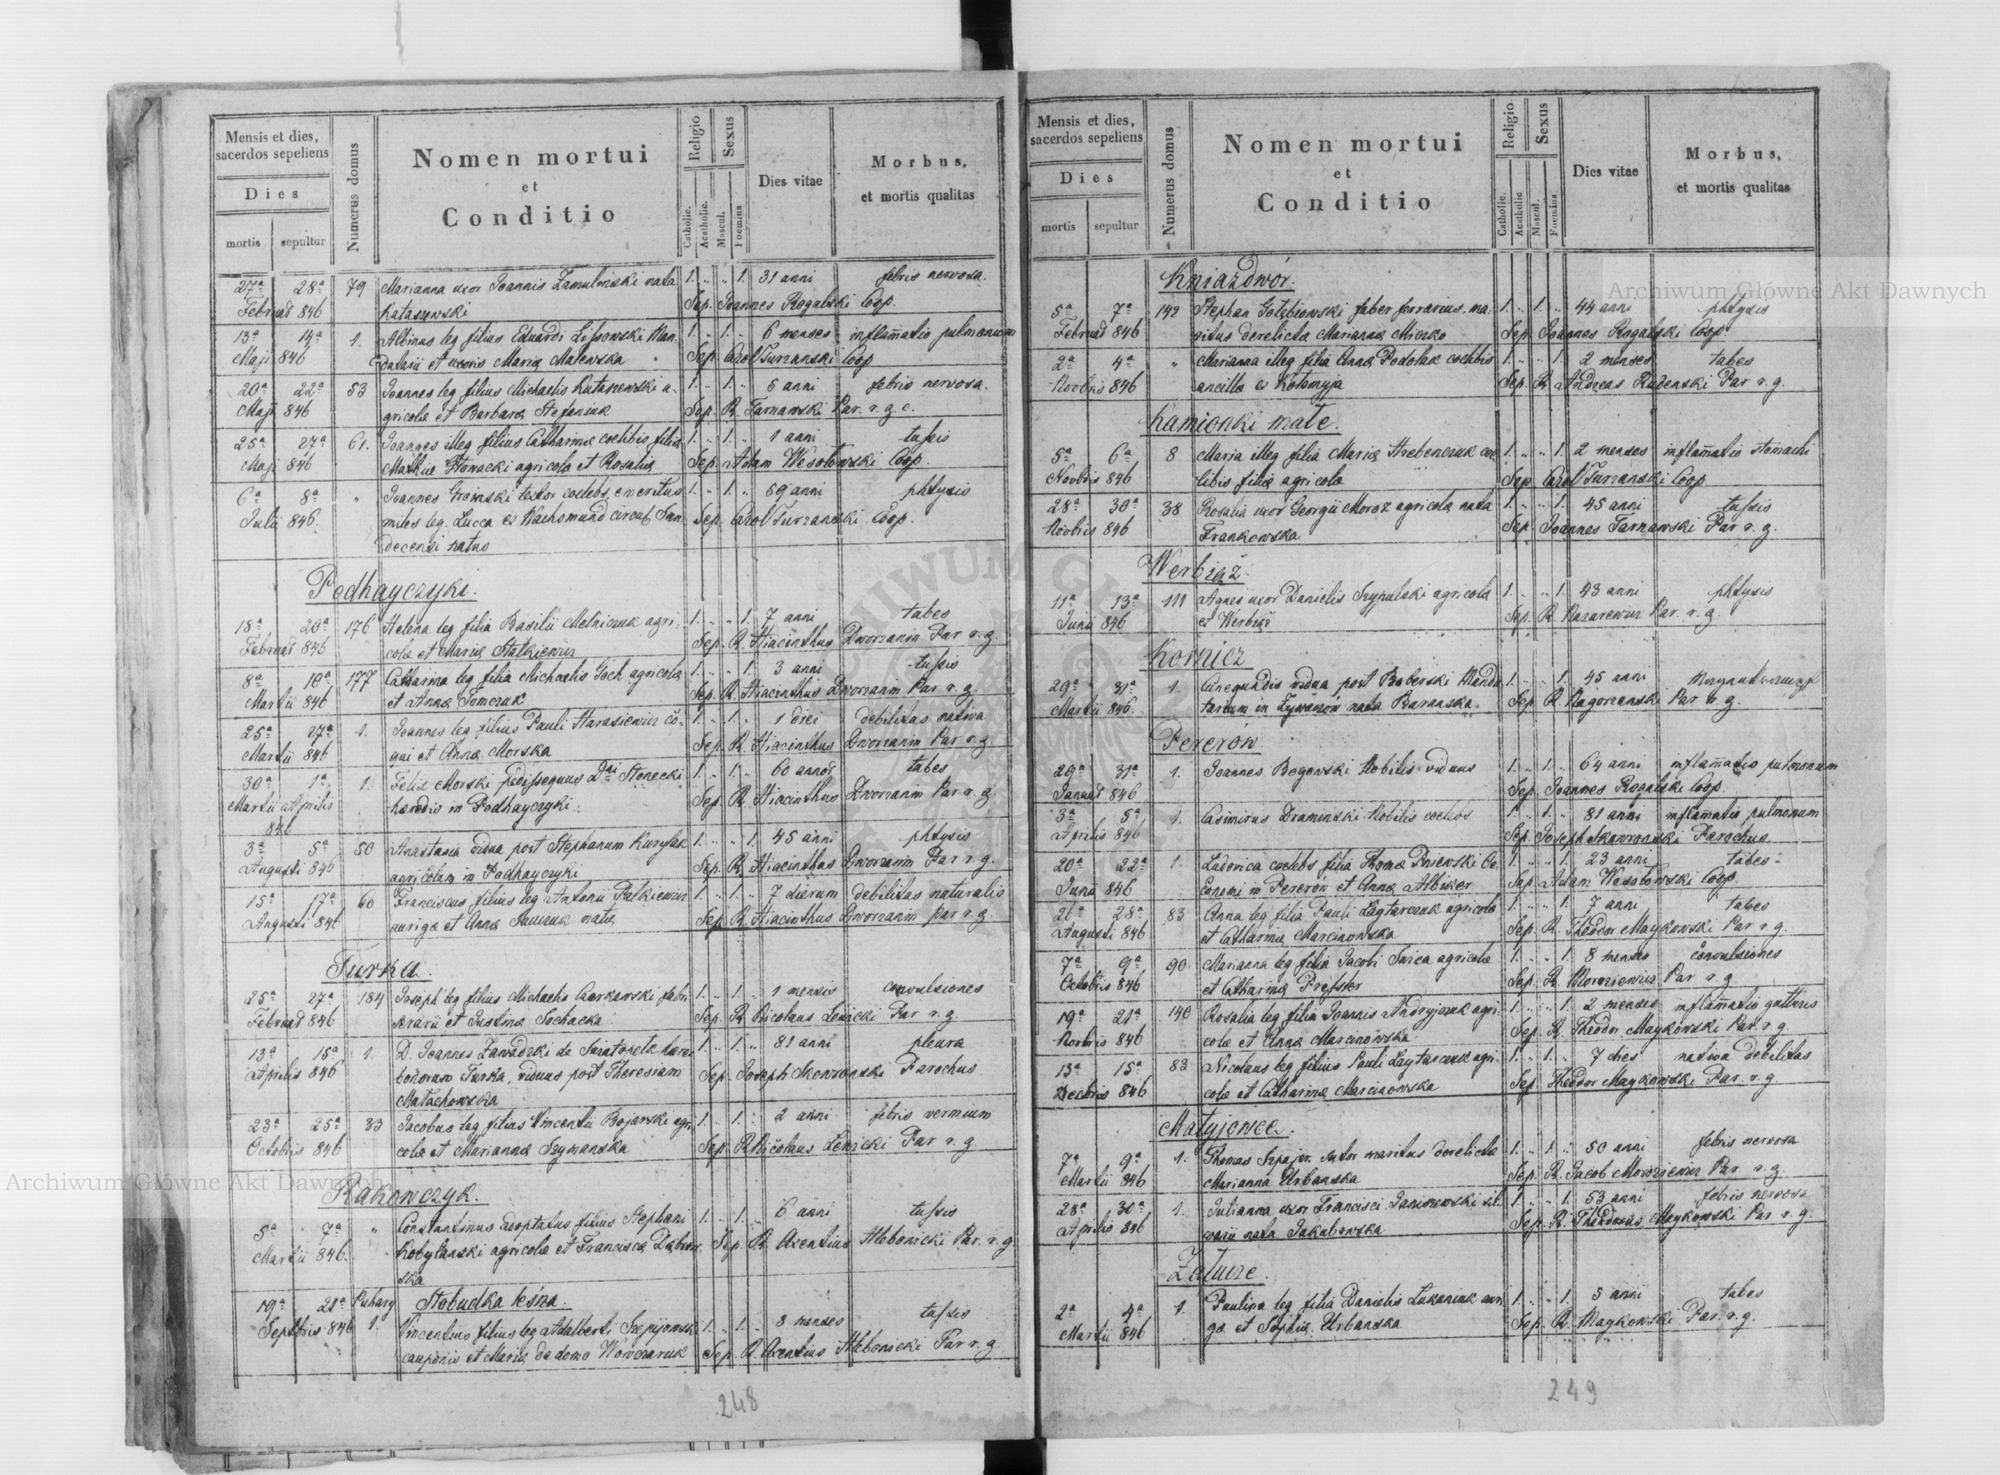 Mensis et dies,
sacerdos sepeliens
Dies
mortis
sepultur
Numerus domus
Nomen mortui
et
Conditio
Religio
Sexus
Catholic.
Acatholic.
Mascul.
Foemina
Dies vitae
Morbus,
et mortis qualitas
27ª 28ª 79 Marianna uxor Joannis nata 1. 1. 31 anni febris nervosa.
Februar 846 Sep. Joannes Rogalski Coop.
13ª 14ª 1. Albinus leg filius Eduardi Man 1. 1. 6 menses inflamatio pulmonum
Maji 846 datarii et uxoris Maria Malewska Sep. Carol Turzanski Coop
20ª 22ª 53 Joannes leg filius Michaelis a 1. 1. 5 anni febris nervosa.
Maji 846 gricolæ et Barbaræ Stefaniuk Sep. R. Tarnawski Par. r. g. c.
25ª 27ª 61. Joannes illeg filius Catharina coelibis filia 1. 1. 1 anni tussis
Maji 846 agricola et Rosalia Sep. Adam Wesołowski Coop.
6ª 8ª Joannes textor coelebs emeritus 1. 1. 59 anni phtysis
Julii 846. miles leg. Lucca ex circul San Sep. Carol Turzanski Coop.
decensi natus
Podhayczyki.
18ª 20ª 176 Helena leg filia Basilii Melniczuk agri 1. 1. 7 anni tabes
Februar 846 colæ et Maria Statkiewicz Sep. R. Hiacinthus Dworzanin Par r. g.
8ª 10ª 177 Catharina leg filia Michaelis agricola 1. 1. 3 anni tussis
Martii 846 et Anna Tomczuk Sep. R. Hiacinthus Dworzanin Par r. g
25ª 27ª 1. Joannes leg filius Pauli Harasiewicz co 1. 1. 1 diei debilitas nativa
Martii 846 qui et Anna Morska Sep. R. Hiacinthus Dworzanin Par r. g
30ª 1ª 1. Felix Morski pedissequus Dni 1. 1. 60 annor tabes
Martii Aprilis hæredis in Podhayczyki. Sep. R. Hiacinthus Dworzanin Par r. g
846
3ª 5ª 50 Anastasia vidua post Stephanum Kurylak 1. 1. 45 anni phtysis
Augusti 846 agricolam in Podhayczyki Sep. R. Hiacinthus Dworzanin Par r. g.
15ª 17ª 60 Franciscus filius leg Antonii 1. 1. 7 dierum debilitas naturalis
Augusti 846 aurigæ et Anna nata Sep. R. Hiacinthus Dworzanin par r. g.
Turka.
25ª 27ª 184 Joseph leg filius Michaelis Czerkawski 1. 1. 1 mensis convulsiones
Februar 846 et Justina Sochacka Sep. R. Nicolaus Lewicki Par r. g.
13ª 15ª 1. D. Joannes Zawadzki de 1. 1. 81 anni pleura
Aprilis 846 bonorum Turka, viduus post Theresiam Sep. Joseph Parochus
Małachowska
23ª 25ª 33 Jacobus leg filius Vincentii Bojarski agri 1. 1. 2 anni febris vermium
Octobris 846 colæ et Marianna Szymanska Sep. R Nicolaus Lewicki Par r. g
Rakowczyk.
5ª 7ª Constantinus adoptatus filius Stephani 1. 1. 6 anni tussis
Martii 846. Kobylanski agricolæ et Francisca Dąbrow Sep. R. Axentius Hlebowicki Par. r. g.
ska
Słobudka leśna.
19ª 21ª
Septbris 846 1. Vincentius filius leg Adalberti 1. 1. 8 menses tussis
cauponis et Maria de domo Sep. R. Axentius Hlebowicki Par r. g.
248
Mensis et dies,
sacerdos sepeliens
Dies
mortis
sepultur
Numerus domus
Nomen mortui
et
Conditio
Religio
Sexus
Catholic.
Acatholic
Mascul.
Foemina
Dies vitae
Morbus,
et mortis qualitas
Kniazdwór.
5ª 7ª 142 Stephan Gołębiowski faber ferrarius. ma 1. 1. 44 anni phtysis
Februar 846 ritus derelicta Marianna Sep Joannes Rogalski Coop
2ª 4ª Marianna illeg filia Anna Podolak coelibis 1. 1. 2 menses tabes
Novbris 846 ancilla ex Kołomyja Sep. R. Andreas Par r. g.
Kamionki małe.
5ª 6ª 8 Maria illeg filia Maria coe 1. 1. 2 menses inflamatio stomachi
Novbris 846 libis filia agricolæ Sep Carol Turzanski Coop
28ª 30ª 38 Rosalia uxor Georgii Moroz agricola nata 1. 1. 45 anni tussis
Novbris 846 Frankowska Sep. Joannes Tarnawski Par r. g.
Werbiąż.
11ª 13ª 111 Agnes uxor Danielis Szypulski agricola 1. 1. 43 anni phtysis
Junii 846 ex Werbiąż Sep. R. Nazarewicz Par. r. g.
Kornicz
29ª 31ª 1. vidua post Boberski Manda 1. 1. 45 anni
Martii 846. tarium in nata Baranska. Sep R. Par r. g.
Pererów
29ª 31ª 1. Joannes Nobilis viduus 1. 1. 64 anni inflamatio pulmonum
Januar 846 Sep. Joannes Rogalski Coop.
3ª 5ª 1. Casimirus Draminski Nobilis coelebs 1. 1. 81 anni inflamatio pulmonum
Aprilis 846 Sep. Joseph Skawronski Parochus
20ª 22ª 1. Ludovica coelebs filia Thoma 1. 1. 23 anni tabes
Junii 846 in Pererów et Anna Albiker Sep Adam Wesołowski Coop
26ª 28ª 83 Anna leg filia Pauli agricola 1. 1. 7 anni tabes
Augusti 846 et Catharina Marcinowska Sep. R. Theodor Maykowski Par r. g.
7ª 9ª 90. Marianna leg filia Jacobi agricola 1. 1. 8 menses convulsiones
Octobris 846 et Catharina Sep. R. Moroziewicz Par r. g
19ª 21ª 140 Rosalia leg filia Joannis Andryjczuk agri 1. 1. 2 menses inflamatio gutturis
Novbris 846 colæ et Anna Marcinowska Sep. R. Theodor Maykowski Par. r. g.
13ª 15ª 83 Nicolaus leg filius Pauli agri 1. 1. 7 dies nativa debilitas
Decbris 846 colæ et Catharina Marcinowska Sep. Theodor Maykowski Par. r. g
Matyjowce.
7ª 9ª 1. Thomas sutor maritus derelicta 1. 1. 50 anni febris nervosa
Martii 846 Marianna Urbanska Sep. R. Jacob Moroziewicz Par. r. g.
28ª 30ª 1. Julianna uxor Francisci sil 1. 1. 53 anni febris nervosa
Aprilis 846 nata Jakubowska Sep. R. Theodorus Maykowski Par r. g.
Załucze.
2ª 4ª 1. Paulina leg filia Danielis Lukaniuk auri 1. 1. 3 anni tabes
Martii 846 gæ et Sophia Urbanska Sep. R. Maykowski Par. r. g.
249
Archiwum Główne Akt Dawnych
Archiwum Główne Akt Dawnych